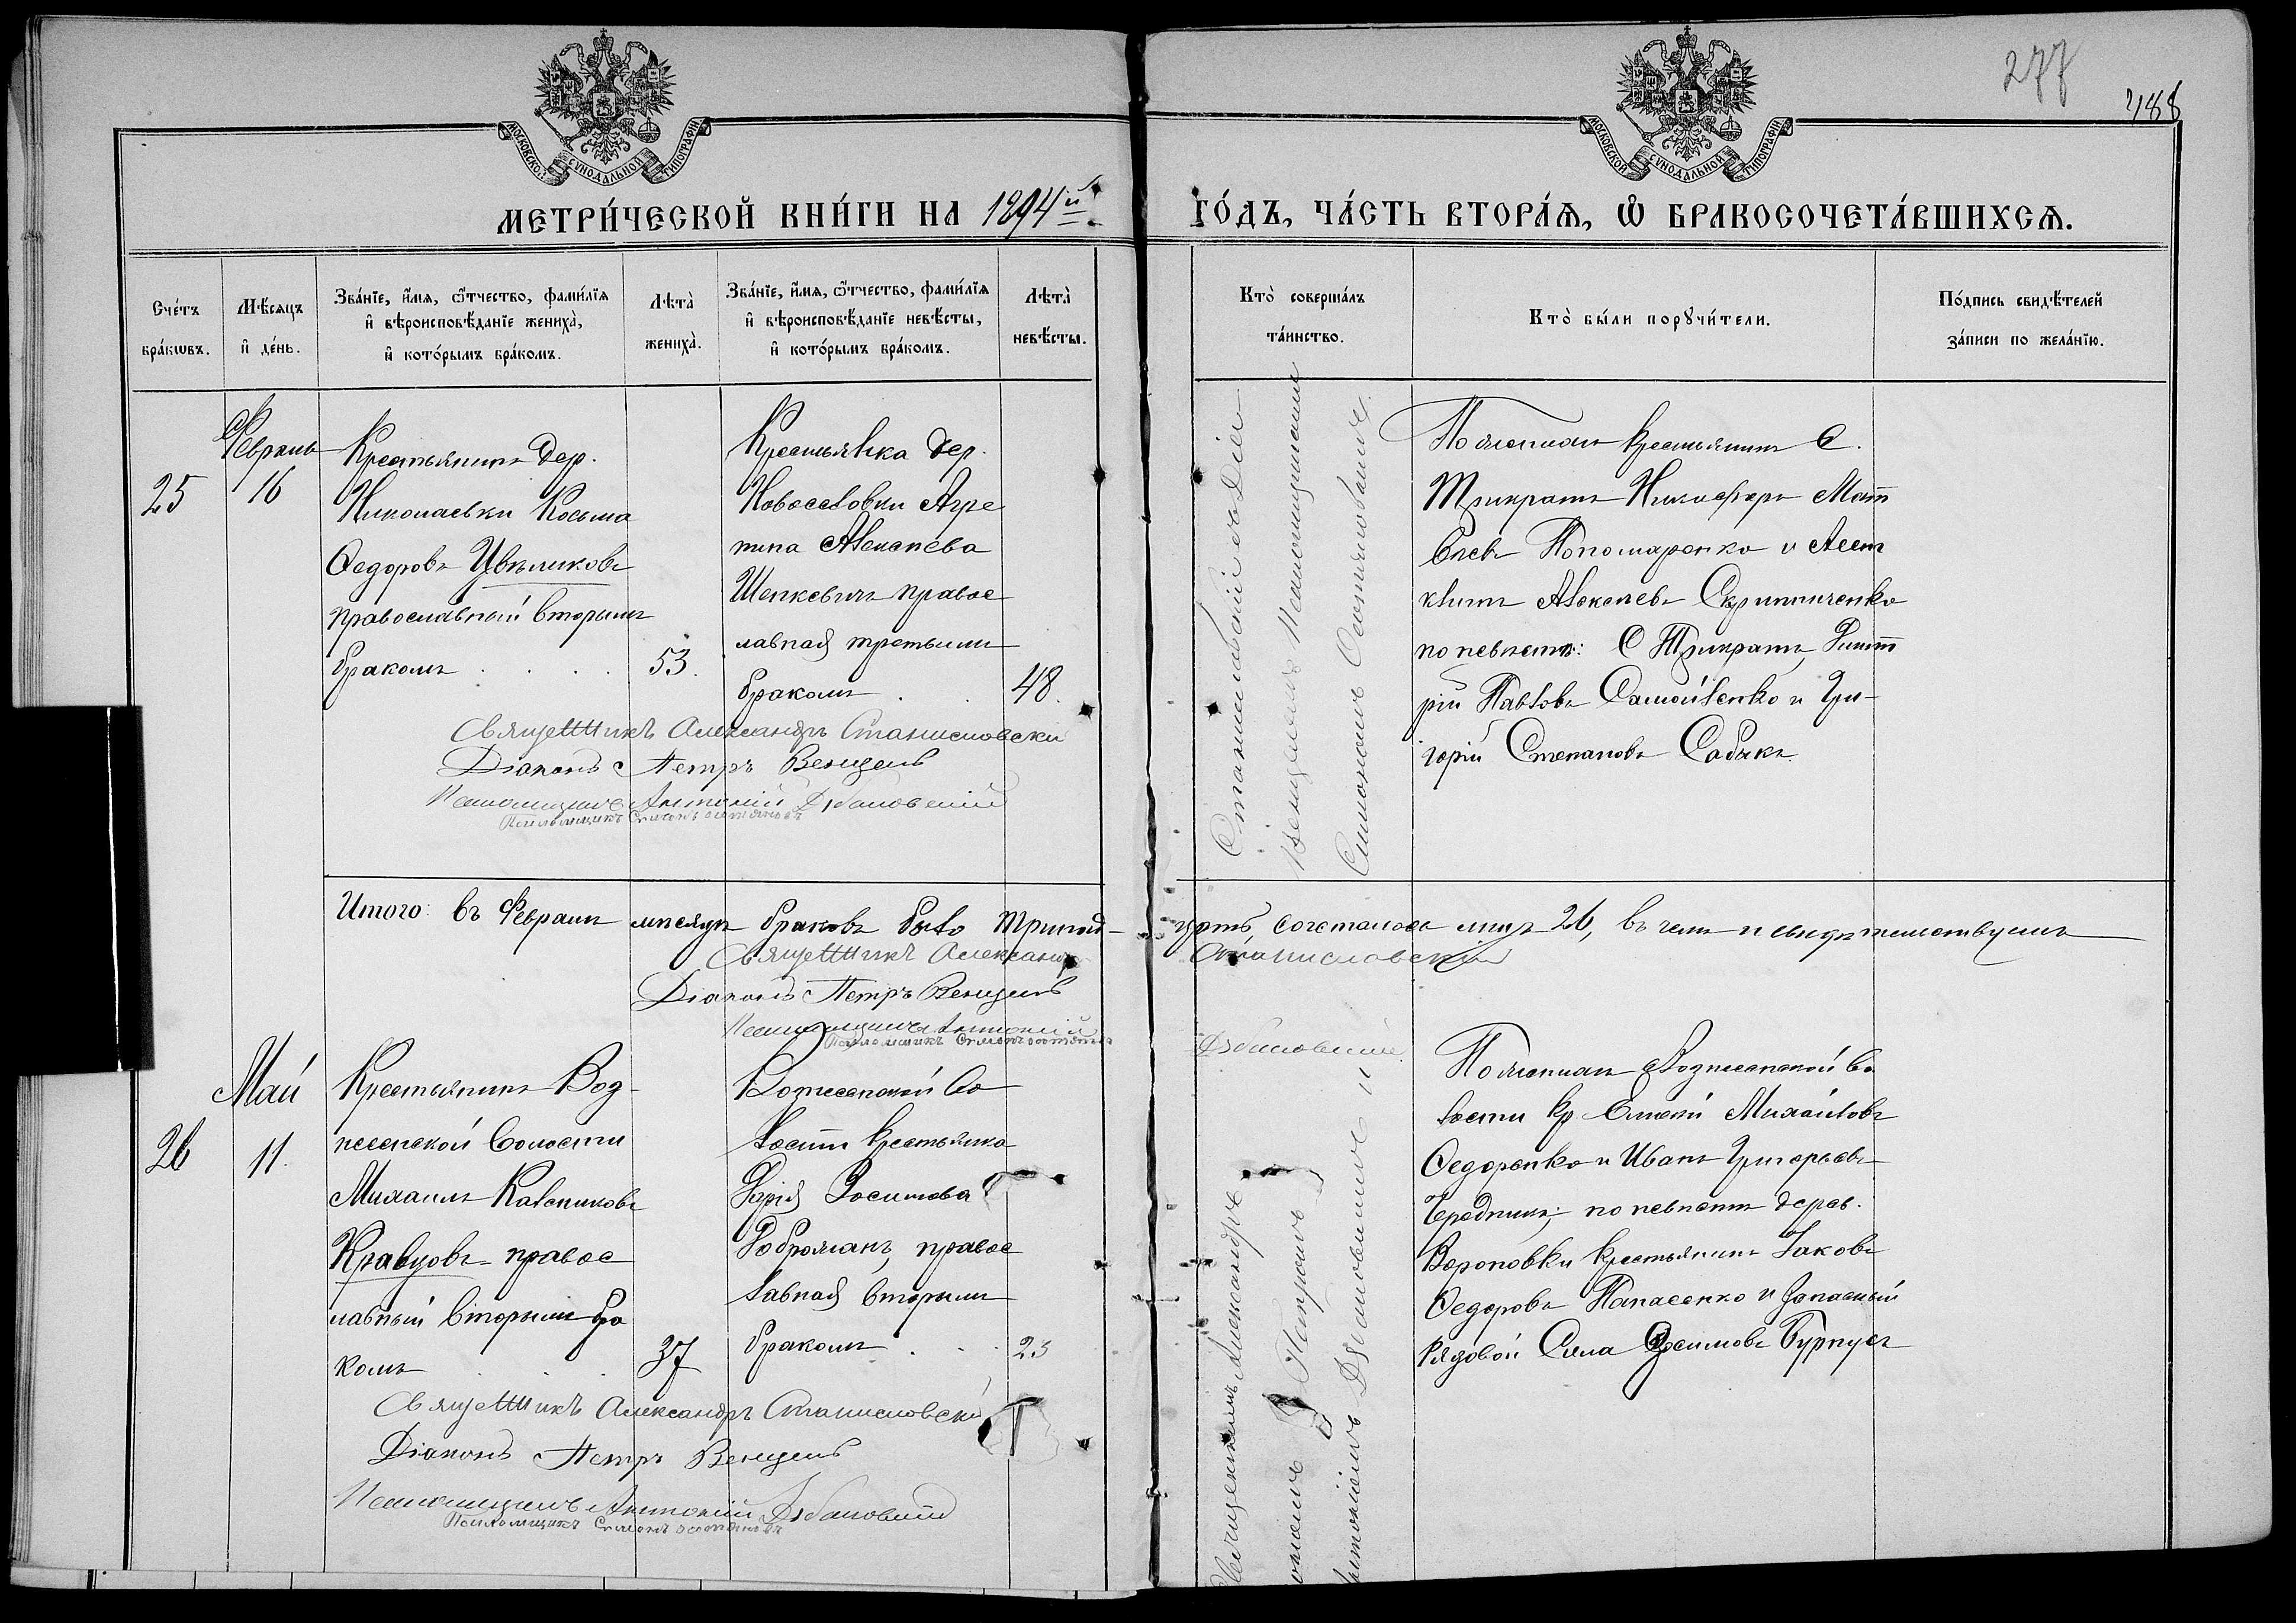 277
488
МОСКОВСКОЙ СѴНОДАЛЬНОЙ ТИПОГРАФІИ
МОСКОВСКОЙ СѴНОДАЛЬНОЙ ТИПОГРАФІИ
МЕТРИ́ЧЕСКОЙ КНИ́ГИ НА 1894й
ГО́ДЪ, ЧА́СТЬ ВТОРА́Я, Ѽ БРАКОСОЧЕТА́ВШИХСЯ.
Сче́тъ бра́кѡвъ.
Мѣ́сяцъ и҆ де́нь.
Зва́нїе, и҆́мя, ѻ҆́тчество, фами́лїя
и҆ вѣроисповѣ́данїе жениха̀,
и҆ кото́рымъ бра́комъ.
Лѣта̀ жениха̀.
Зва́нїе, и҆́мя, ѻ҆́тчество, фами́лїя
и҆ вѣроисповѣ́данїе невѣ́сты,
и҆ кото́рымъ бра́комъ.
Лѣта̀ невѣ́сты.
Кто̀ соверша́лъ та́инство.
Кто̀ бы́ли порꙋчи́тели.
По́дпись свидѣ́телей
за́писи по жела́нїю.
25
Февраль
16
Крестьянинъ дер.
Николаевки Косьма
Ѳедоровъ Цвѣликовъ
православный вторымъ
бракомъ
53.
Крестьянка дер.
Новоселовки Агре
пина Алексѣева
Шепкевичъ правос
лавная третьимъ
бракомъ
48.
Станиславскій
Симономъ
По женихѣ крестьянинъ С.
Трикратъ Никифоръ Мат
ѳеевъ Пономаренко и
Алексѣевъ Скрипниченко
по невѣстѣ: С Трикратъ, Димит
рій Павловъ Самойленко и Гри-
горій Степановъ Собукъ
Священникъ Александръ Станиславскій
Діаконъ Петръ Венцель
Псаломщикъ Антоній Дзбановскій
Псаломщикъ Симонъ
Итого: въ Февралѣ мѣсяцѣ браковъ было тринад-
цать, сочеталось лицъ 26, въ чемъ и свидѣтельствуемъ
Священникъ Александръ
Станиславскій
Діаконъ Петръ Венцель
Псаломщикъ Антоній
Дзбановскій
Псаломщикъ Симонъ
26
Май
11.
Крестьянинъ Воз-
несенской волости
Михаилъ Калениковъ
Кравцовъ правос
лавный вторымъ бра
комъ
37
Вознесенской во
лости крестьянка
Дарія Зосимова
Доброжанъ, правос
лавная вторымъ
бракомъ
23
Священникомъ Александръ
Петромъ
Антоніемъ Дзбановскимъ и
По женихѣ Вознесенской во
лости кр. Алексѣй Михайловъ
Ѳедоренко и Иванъ Григорьевъ
Чередникъ; по невѣстѣ дерев.
Вороновки крестьянинъ Іаковъ
Ѳедоровъ Панасенко и запасный
рядовой Сила Зосимовъ Бурнусъ
Священникъ Александръ Станиславскій
Діаконъ Петръ Венцель
Псаломщикъ Антоній Дзбановскій
Псаломщикъ Симонъ